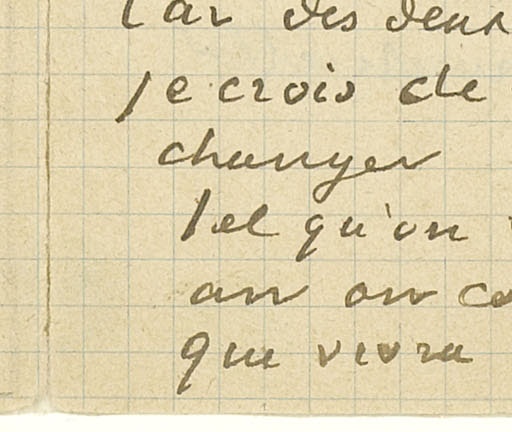 Car des deux
je crois de
changer
Tel qu'on
an on co
que vivra